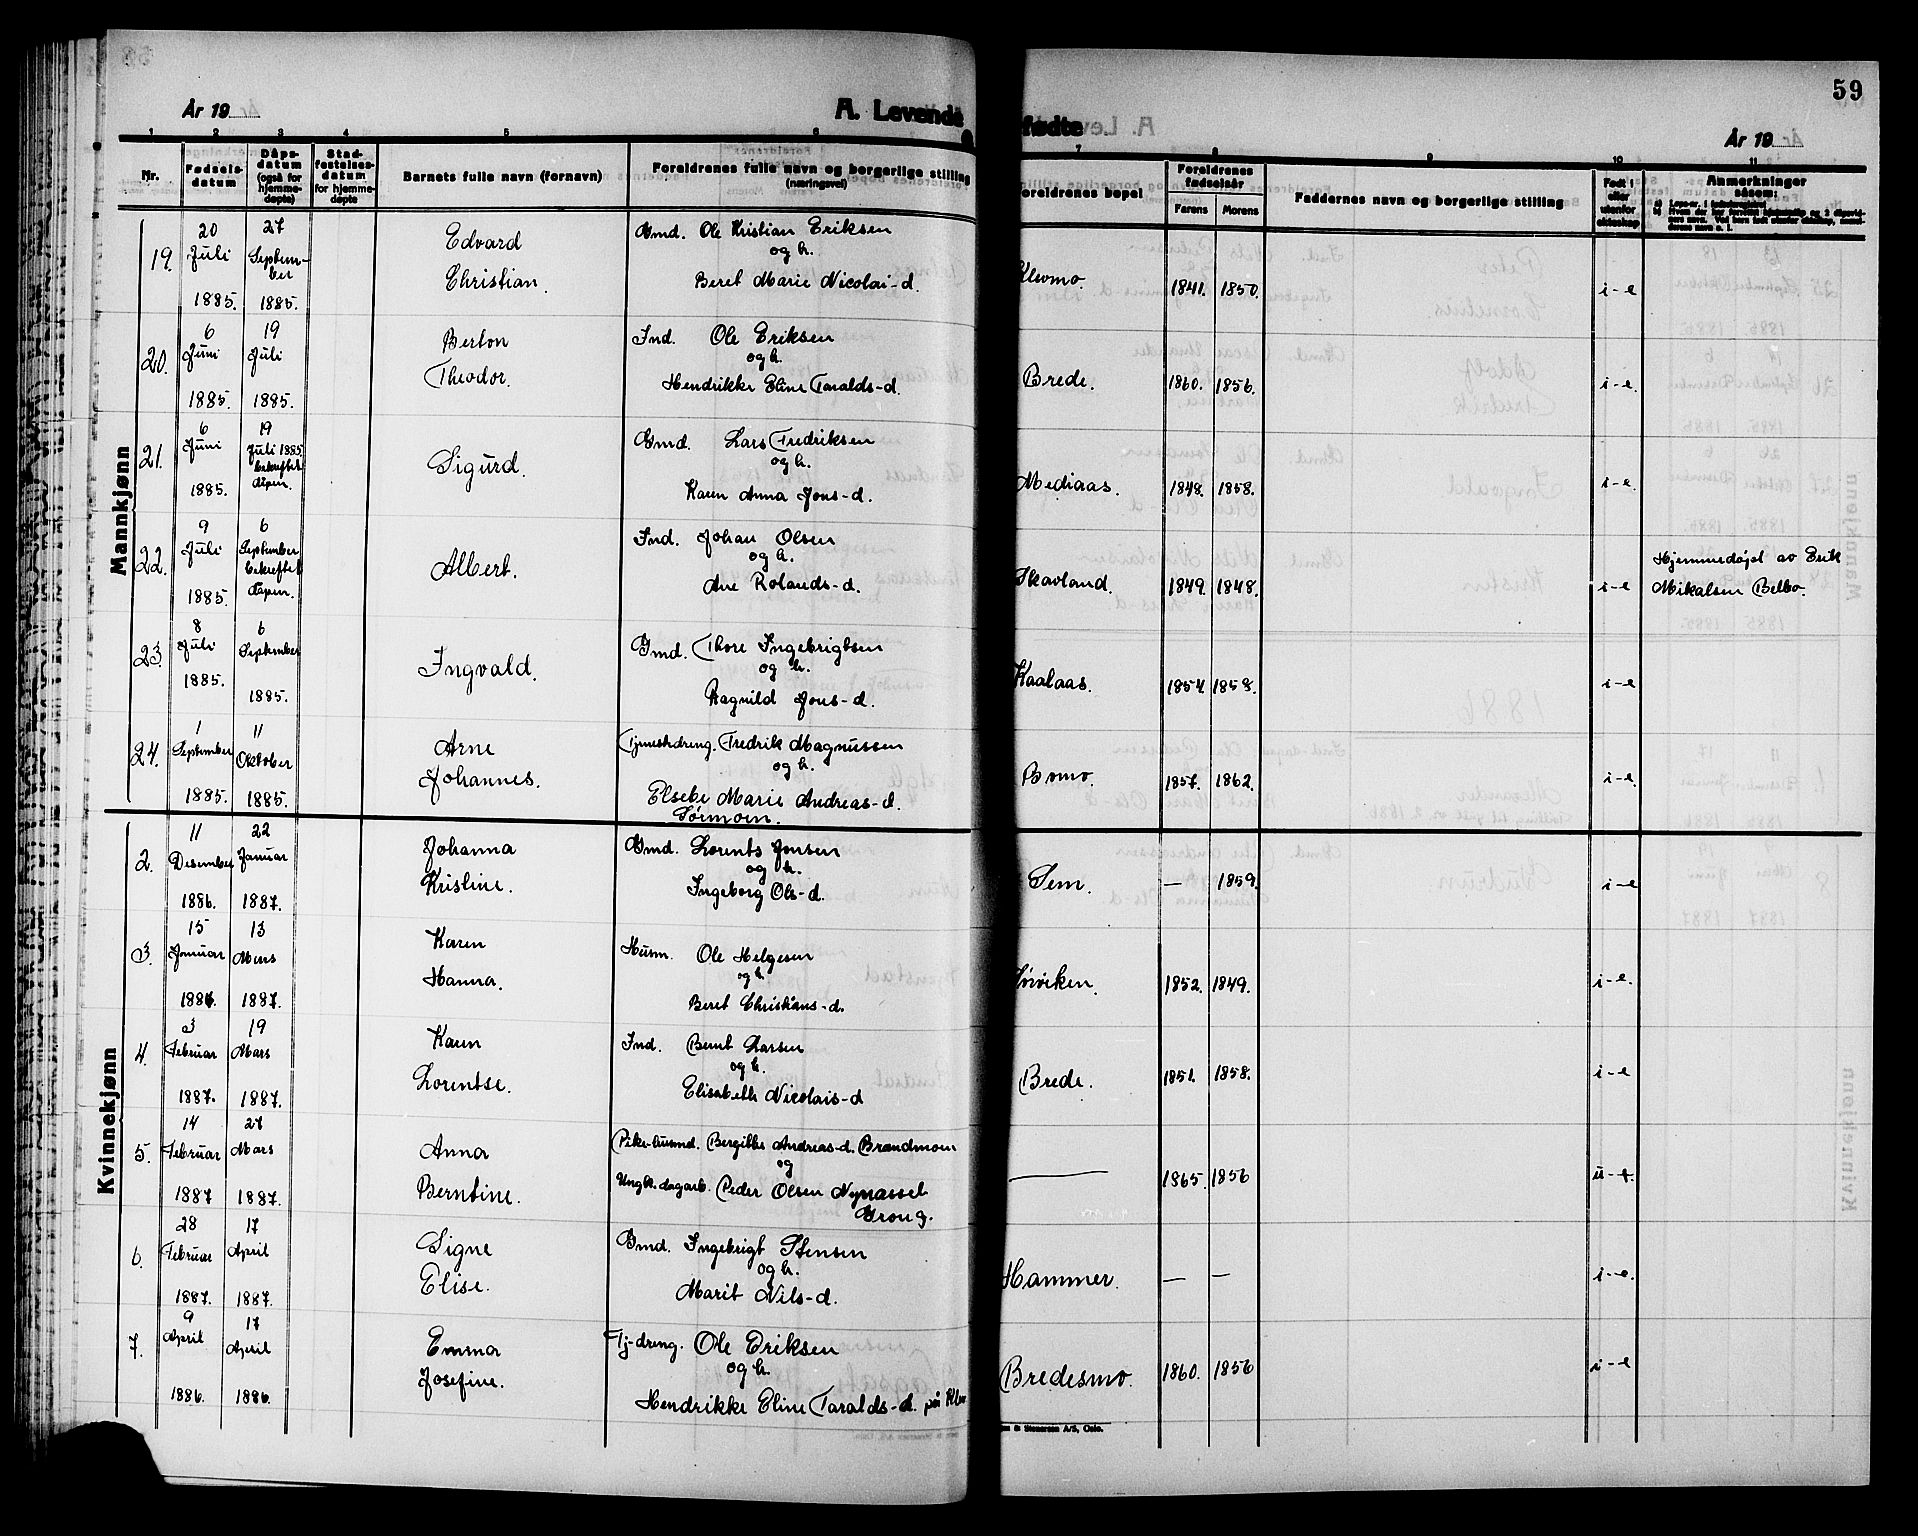 59
År 19
A. Levende fødte
År 19
1 2 3 4 5 6 7 8 9 10 11
Nr.
Fødsels-
datum
Dåps-
datum
(også for
hjemme-
døpte)
Stad-
festelses-
datum
for hjemme-
døpte
Barnets fulle navn (fornavn)
Foreldrenes fulle navn og borgerlige stilling
(næringsvei)
Foreldrenes bopel
Foreldrenes
fødselsår
Farens Morens
Faddernes navn og borgerlige stilling
Født i
eller
utenfor
ekteskap
Anmerkninger
såsom:
Mannkjønn
20 27 Edvard Gmd. Ole Kristian Eriksen
19. Juli Septem- og h. Klevmo. 1841. 1850. i-e
ber Christian. Beret Marie Nicolai-d.
1885. 1885.
6 19 Berton Ind. Ole Eriksen
20. Juni Juli og h. Brede. 1860. 1856. i-e
Theodor. Hendrikke Eline Taralds-d.
1885. 1885.
6 19 Gmd. Lars Fredriksen
21. Juni Juli 1885. Sigurd. og h. Mediaas. 1848. 1858. i-e
bekreftet
1885. dåpen. Karen Anna Jons-d.
9 6 Ind. Johan Olsen
22. Juli September Albert. og h. Skavland. 1849. 1848. i-e Hjemmedøpt av Erik
bekreftet Mikalsen Belbo.
1885. dåpen. Ane Rolands-d.
8 6 Gmd. Thore Ingebrigtsen
23. Juli September Ingvald. og h. Kaalaas. 1854. 1858. i-e
1885. 1885. Ragnild Jons-d.
1 11 Arne Tjenestedreng. Fredrik Magnussen
24. September Oktober og h. Bomo. 1857. 1862. i-e
Johannes.
1885. 1885. Elsebe Marie Andreas-d.
Sørmoen.
Kvinnekjønn
11 22 Johanna Gmd. Lorents Jonsen
2. Desember Januar og h. Sem. — 1859. i-e
Kristine. Ingeborg Ols-d.
1886. 1887.
15 13 Karen Husm. Ole Helgesen
3. Januar Mars og h. Sørviken. 1852. 1849. i-e.
Hanna.
1887. Beret Christians-d.
3 19 Karen Ind. Bernt Larsen
4. Februar Mars og h. Brede. 1851. 1858. i-e
Lorentse.
1887. 1887. Elisabeth Nicolais-d
14 27 Anna Pike-husmd. Bergitte Andreas-d. Brandmoen
5. Februar Mars og — 1865. 1856 u-e.
1887 1887. Berntine. Ungk. dagarb. Peder Olsen
Grong.
28 17 Signe Gmd. Ingebrigt Stensen
6. Februar April og h. Hammer. — — i-e.
Elise.
1887. 1887. Marit Nils-d.
9 17 Emma Tj-dreng. Ole Eriksen
7. April April og h. Bredesmo. 1860. 1856 i-e
Josefine.
1886. 1886. Hendrikke Eline Taralds-d.
A/S, Oslo.